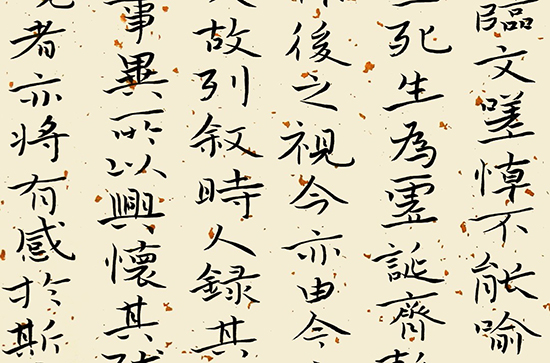 臨文嗟悼不能喻
死生為虛誕齊彭
後之視今亦由今
故列叙時人録其
事異所以興懷其
者亦將有感於斯